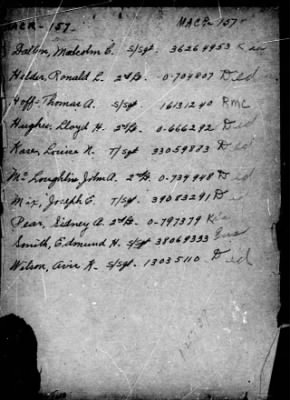 MACR-157 MACR-157
Malcolm E. S/Sgt. 36264953
Helder, Ronald L. 2nd Lt. 0-704807 Ded
Hoff, Thomas A. S/Sgt. 16131240 RMC
Hughes, Lloyd H. 2nd Lt. 0-666292 Ded
Kase, Louis N. T/Sgt 33059883 Ded
McLoughlin, John A. 2nd Lt. 0-739948 Ded
Mix, Joseph E. T/Sgt. 39083291 Ded
Pear, Sidney A. 2nd Lt. 0-797379
Smith, Edmund H. S/Sgt 38069333
Wilson, Avis K. S/Sgt. 13035110 Ded